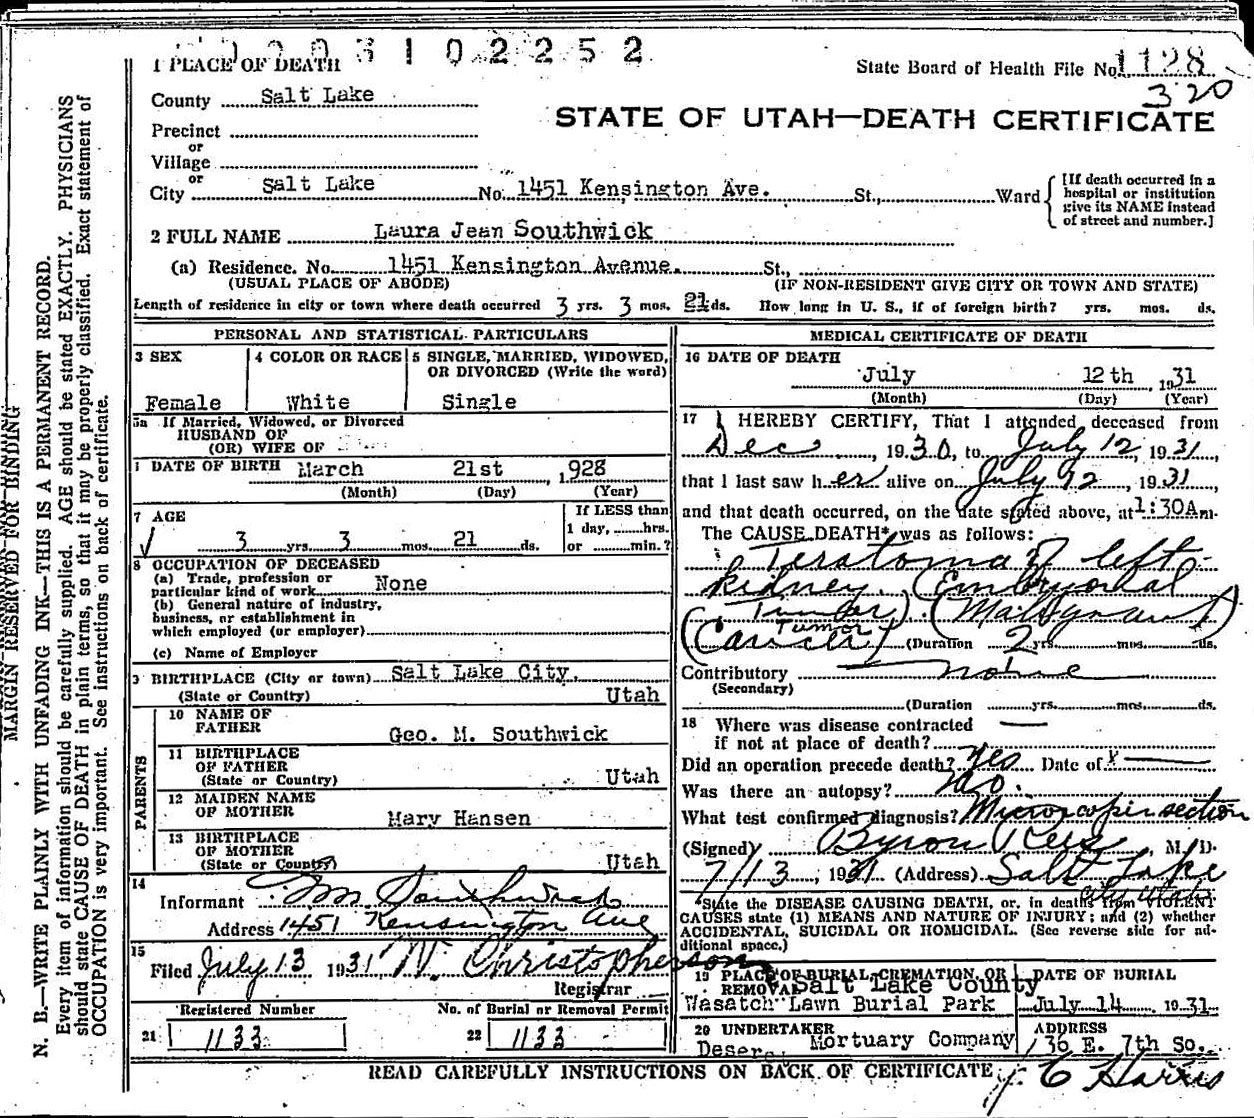 3102252
1 PLACE OF DEATH
State Board of Health File No. 1128
320
County Salt Lake
STATE OF UTAH—DEATH CERTIFICATE
Precinct
or
Village
or
City Salt Lake No. 1451 Kensington Ave. St., Ward
[If death occurred in a
hospital or institution
give its NAME instead
of street and number.]
2 FULL NAME Laura Jean Southwick
(a) Residence. No. 1451 Kensington Avenue. St.,
(USUAL PLACE OF ABODE) (IF NON-RESIDENT GIVE CITY OR TOWN AND STATE)
Length of residence in city or town where death occurred 3 yrs. 3 mos. 21 ds. How long in U. S., if of foreign birth? yrs. mos. ds.
PERSONAL AND STATISTICAL PARTICULARS
3 SEX
Female
4 COLOR OR RACE
White
5 SINGLE, MARRIED, WIDOWED,
OR DIVORCED (Write the word)
Single
5a If Married, Widowed, or Divorced
HUSBAND OF
(OR) WIFE OF
DATE OF BIRTH March 21st 1,928
(Month) (Day) (Year)
7 AGE
3 yrs. 3 mos. 21 ds.
If LESS than
1 day, hrs.
or min.?
8 OCCUPATION OF DECEASED
(a) Trade, profession or
particular kind of work None
(b) General nature of industry,
business, or establishment in
which employed (or employer)
(c) Name of Employer
9 BIRTHPLACE (City or town) Salt Lake City,
(State or Country) Utah
PARENTS
10 NAME OF
FATHER Geo. M. Southwick
11 BIRTHPLACE
OF FATHER
(State or Country) Utah
12 MAIDEN NAME
OF MOTHER Mary Hansen
13 BIRTHPLACE
OF MOTHER
(State or Country) Utah
14
Informant M. Southwick
Address 1451 Kensington Ave
15
Filed July 13 1931 W. Christopherson
Registrar
Registered Number
21 1133
No. of Burial or Removal Permit
22 1133
MEDICAL CERTIFICATE OF DEATH
16 DATE OF DEATH
July 12th 1931
(Month) (Day) (Year)
17 I HEREBY CERTIFY, That I attended deceased from
Dec, 1930, to July 12, 1931,
that I last saw her alive on July 12, 1931,
and that death occurred, on the date stated above, at 1:30 A m.
The CAUSE DEATH* was as follows:
Teratoma of left
kidney. (Embryonal
Tumor). (Malignant)
(Cancer) Tumor (Duration 2 yrs. mos. ds.
Contributory none
(Secondary)
(Duration yrs. mos. ds.
18 Where was disease contracted
if not at place of death?
Did an operation precede death? Yes Date of
Was there an autopsy? No.
What test confirmed diagnosis? Microscopic section
(Signed) Byron Rees, M. D.
7/13, 1931 (Address) Salt Lake
City Utah
*State the DISEASE CAUSING DEATH, or, in deaths from VIOLENT
CAUSES state (1) MEANS AND NATURE OF INJURY; and (2) whether
ACCIDENTAL, SUICIDAL OR HOMICIDAL. (See reverse side for ad-
ditional space.)
19 PLACE OF BURIAL, CREMATION, OR
REMOVAL Salt Lake County
Wasatch Lawn Burial Park
DATE OF BURIAL
July 14 1931
20 UNDERTAKER
Mortuary Company
ADDRESS
36 E. 7th So.
READ CAREFULLY INSTRUCTIONS ON BACK OF CERTIFICATE
J. C Harris
MARGIN RESERVED FOR BINDING
N. B.—WRITE PLAINLY WITH UNFADING INK—THIS IS A PERMANENT RECORD.
Every item of information should be carefully supplied. AGE should be stated EXACTLY. PHYSICIANS
should state CAUSE OF DEATH in plain terms, so that it may be properly classified. Exact statement of
OCCUPATION is very important. See instructions on back of certificate.